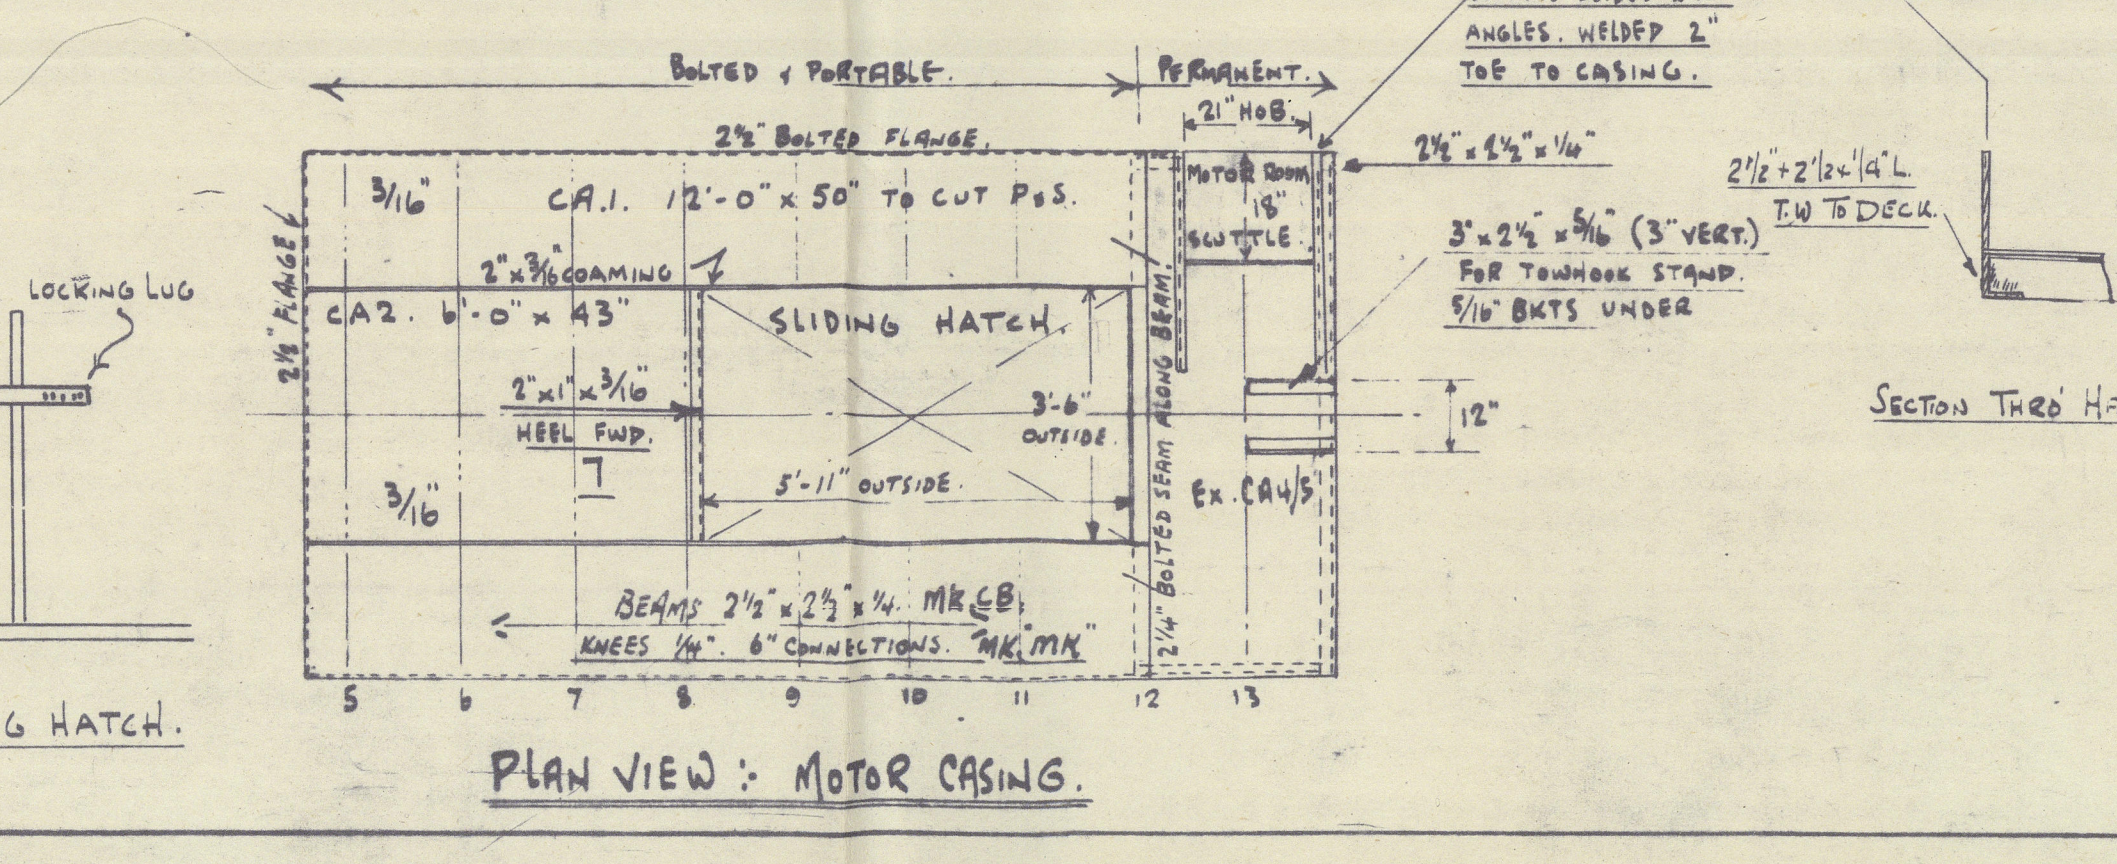 ANGLES. WELDED 2"
TOE TO CASING.
BOLTED & PORTABLE.
PERMANENT.
21" HOB.
2½" BOLTED FLANGE.
2½" x 2½" x ¼"
2'/2"+2'/2x'/4" L.
T.W TO DECK.
MOTOR ROOM
18"
SCUTTLE.
3/16"
CA.1. 12'-0" x 50" TO CUT P&S.
2½" FLANGE
3" x 2½" x 5/16" (3" VERT.)
FOR TOWHOOK STAND.
5/16" BKTS UNDER
2" x 3/16" COAMING
LOCKING LUG
CA2. 6'-0" x 43"
SLIDING HATCH.
2" x 1" x 3/16"
HEEL FWD.
3'-6"
OUTSIDE.
12"
SECTION THRO'
5'-11" OUTSIDE.
3/16"
2¼" BOLTED SEAM ALONG BEAM.
EX. CA4/5
BEAMS 2½" x 2½" x ¼. MK CB.
KNEES ¼". 6" CONNECTIONS. "MK. MK"
5 6 7 8 9 10 11 12 13
G HATCH.
PLAN VIEW :- MOTOR CASING.